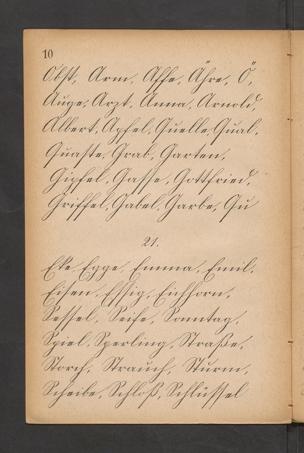 10
Obst, Arm, Affe, Ähre, Ö,
Auge, Arzt, Anna, Arnold,
Albert, Apfel, Quelle, Qual,
Quaste, Grab, Garten,
Gipfel, Gasse, Gottfried,
Griffel, Gabel, Garbe, Gu
21.
Eke, Egge, Emma, Emil,
Eisen, Essig, Eichhorn,
Sessel, Seife, Sonntag,
Spiel, Sperling, Straße,
Storch, Strauch, Sturm,
Scheibe, Schloß, Schlüssel